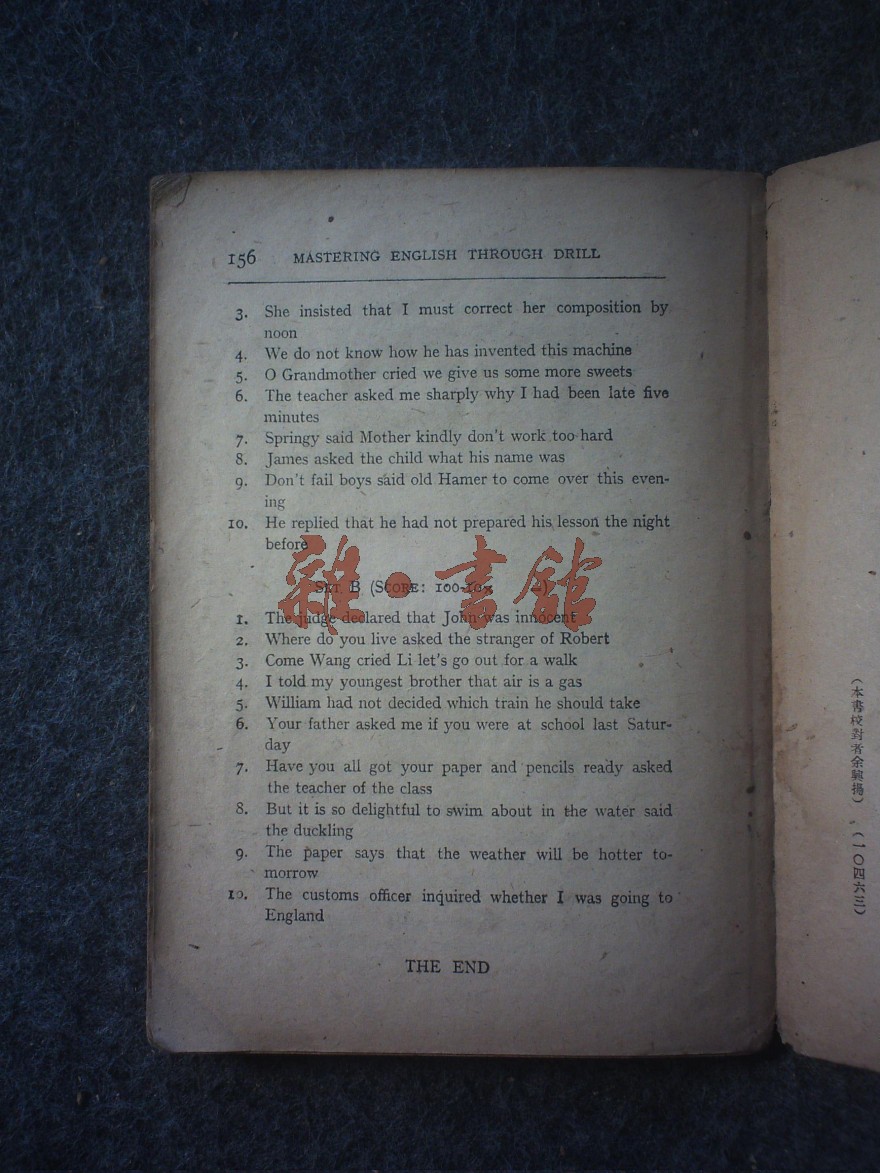 156 MASTERING ENGLISH THROUGH DRILL
3. She insisted that I must correct her composition by
noon
4. We do not know how he has invented this machine
5. O Grandmother cried we give us some more sweets
6. The teacher asked me sharply why I had been late five
minutes
7. Springy said Mother kindly don't work too hard
8. James asked the child what his name was
9. Don't fail boys said old Hamer to come over this even-
ing
10. He replied that he had not prepared his lesson the night
before
雜·書館
SET B (SCORE: 100-10×
1. The judge declared that John was innocent
2. Where do you live asked the stranger of Robert
3. Come Wang cried Li let's go out for a walk
4. I told my youngest brother that air is a gas
5. William had not decided which train he should take
6. Your father asked me if you were at school last Satur-
day
7. Have you all got your paper and pencils ready asked
the teacher of the class
8. But it is so delightful to swim about in the water said
the duckling
9. The paper says that the weather will be hotter to-
morrow
10. The customs officer inquired whether I was going to
England
THE END
(本書校對者余興揚)
(一〇四六三)